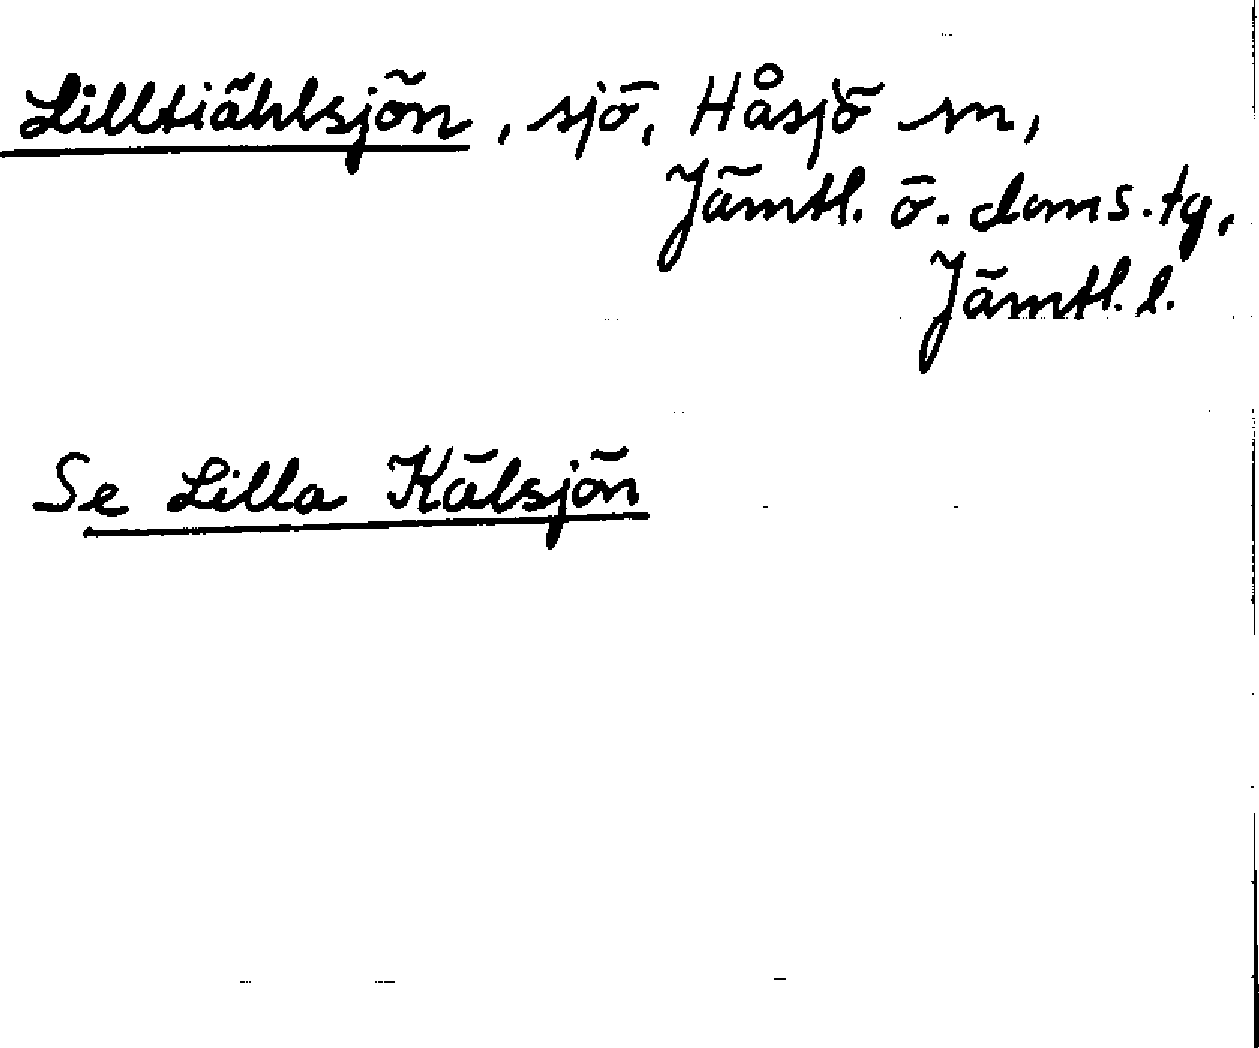 Lilltiählsjön, sjö, Håsjö sn,
Jämtl. ö. doms.tg,
Jämtl. l.
Se Lilla Kälsjön